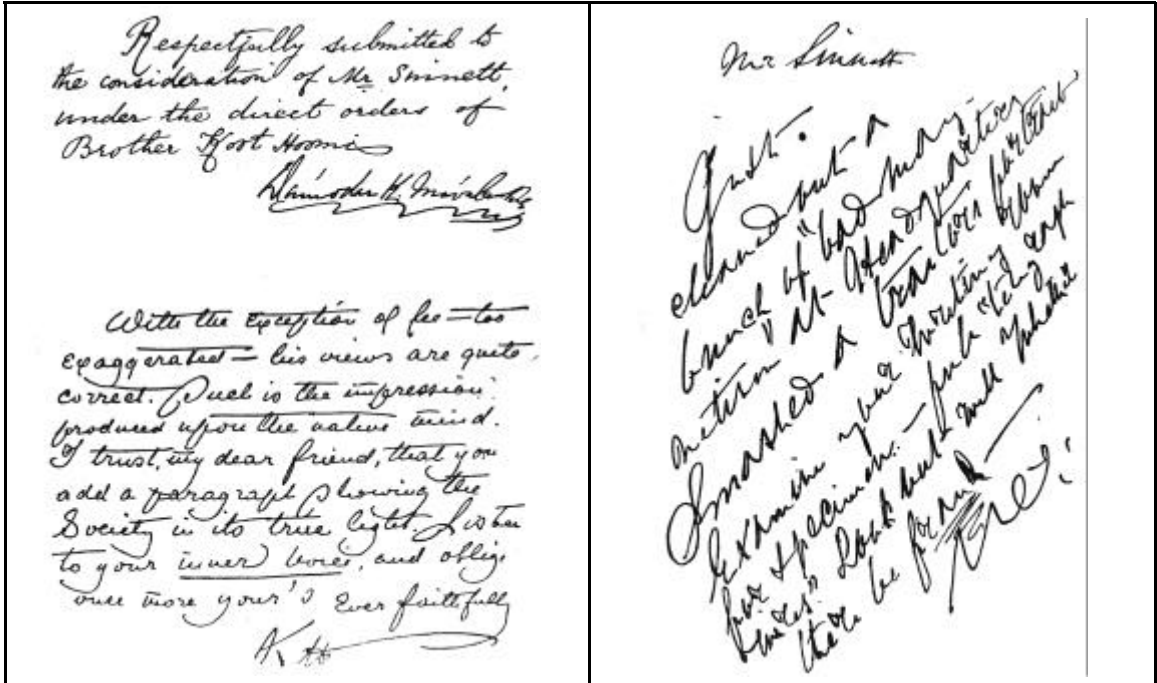 Respectfully submitted to
the consideration of Mr. Sinnett,
under the direct orders of
Brother Koot Hoomi
Damodar K. Mavalankar
With the exception of fee—too
exaggerated—his views are quite
correct. Such is the impression
produced upon the native mind.
I trust, my dear friend, that you
add a paragraph showing the
Society in its true light. Listen
to your inner voice, and oblige
once more your's Ever faithfully
K H
Mr Sinnett
cleaned out a
bunch of "bad
Headquarters
Smashed a traitors
Examine your writing
for specimen.
Look but will
there be found